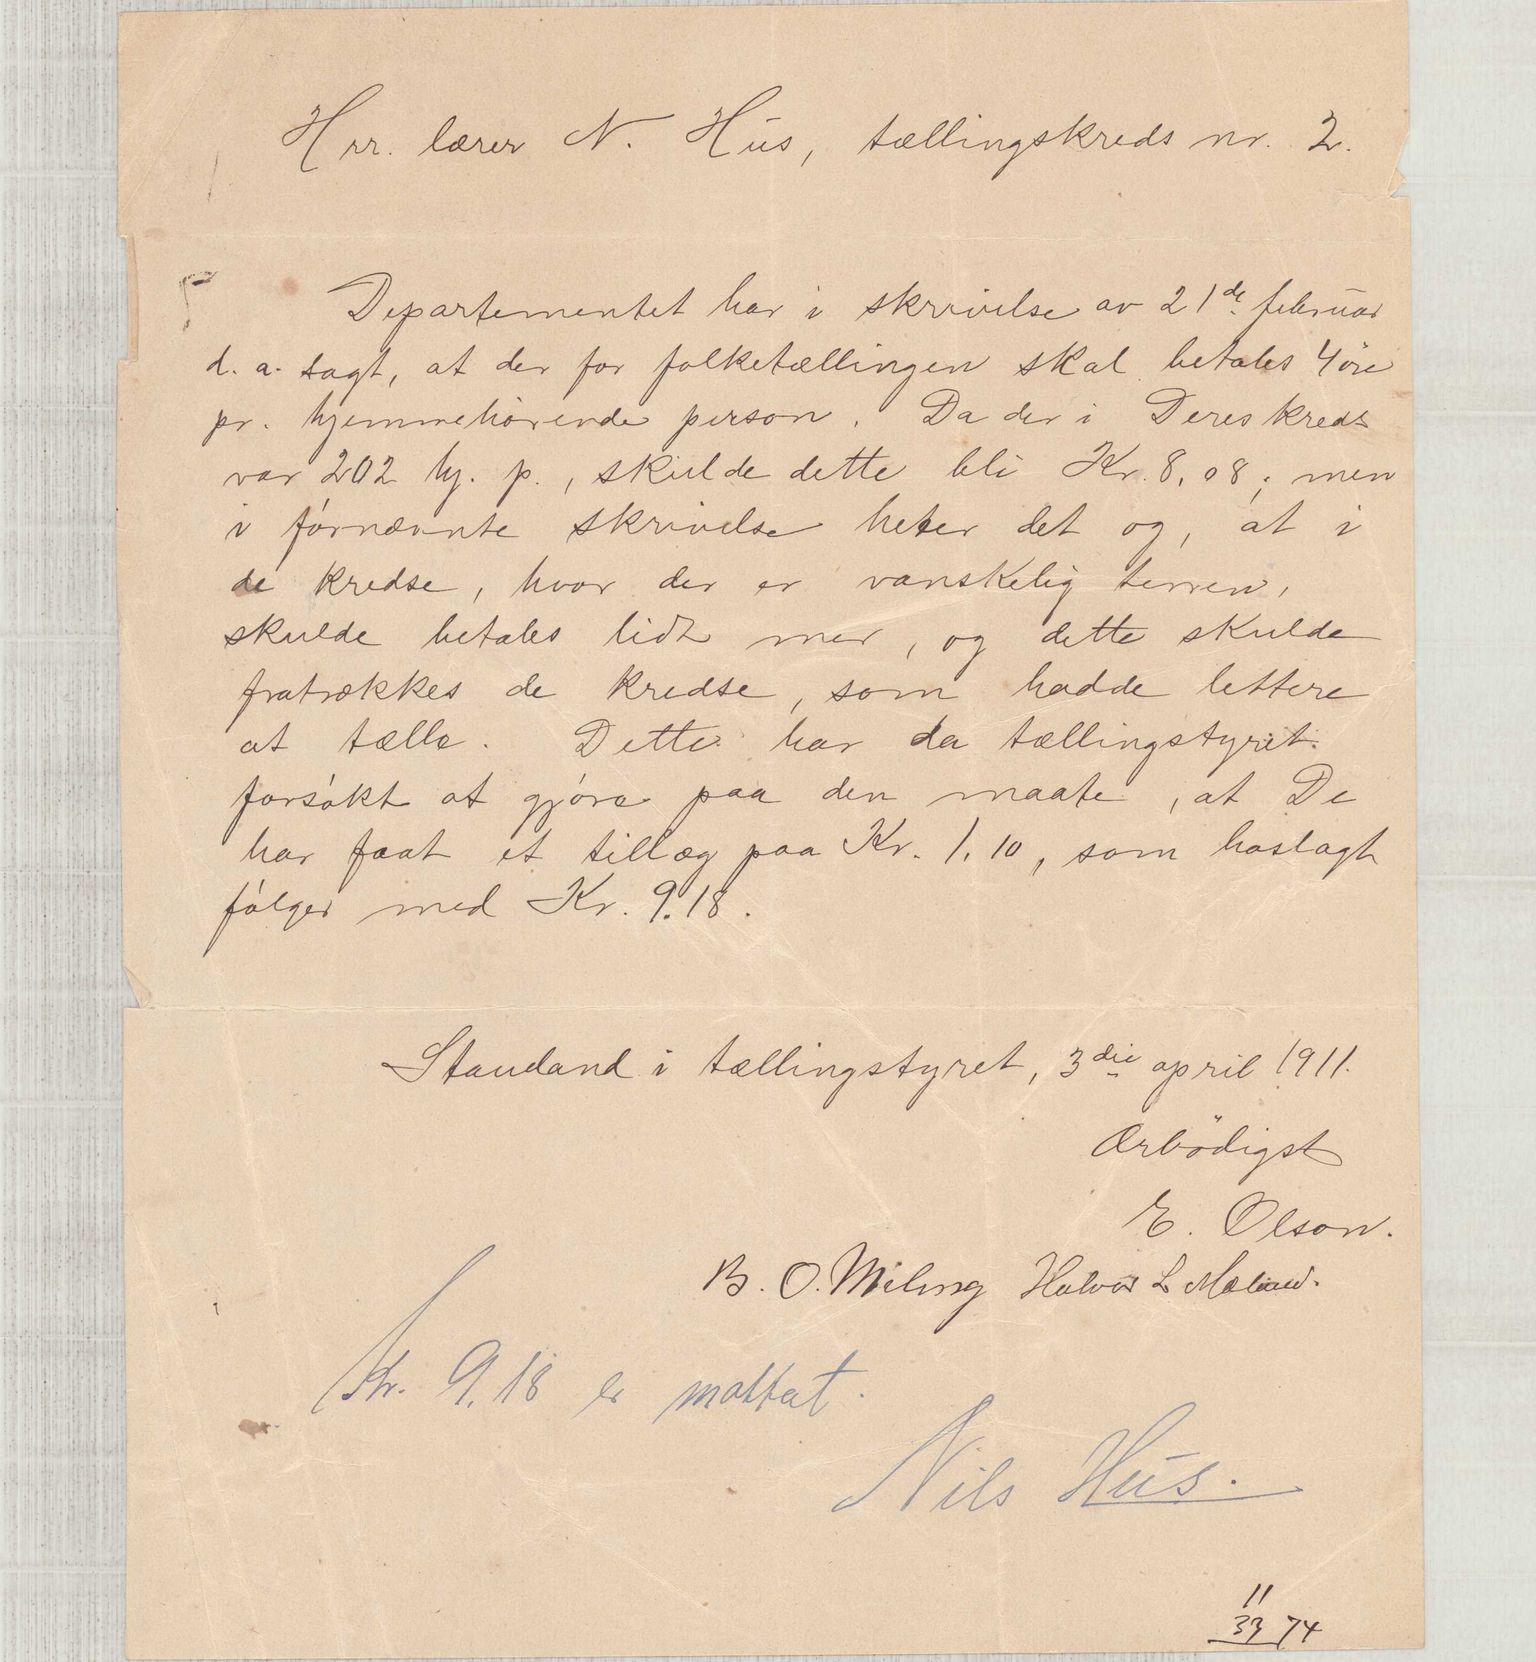 Hrr. lærer N. Hus, tællingskreds nr. 2.
Departementet har i skrivelse av 21de februar
d. a. sagt, at der for folketællingen skal betales 4 øre
pr. hjemmehørende person. Da der i Deres kreds
var 202 hj. p., skulde dette bli Kr. 8,08; men
i førnævnte skrivelse heter det og, at i
de kredse, hvor der er vanskelig terren,
skulde betales lidt mer, og dette skulde
fratrækkes de kredse, som hadde lettere
at tælle. Dette har da tællingstyret
forsøkt at gjøre paa den maate, at De
har faat et tillæg paa Kr. 1,10, som hoslagt
følger med Kr. 9.18.
Staudand i tællingstyret, 3die april 1911.
Ærbødigst
E. Olson.
B. O. Meling Halvor L
Kr. 9.18 er mottat.
Nils Hus.
11
33 74